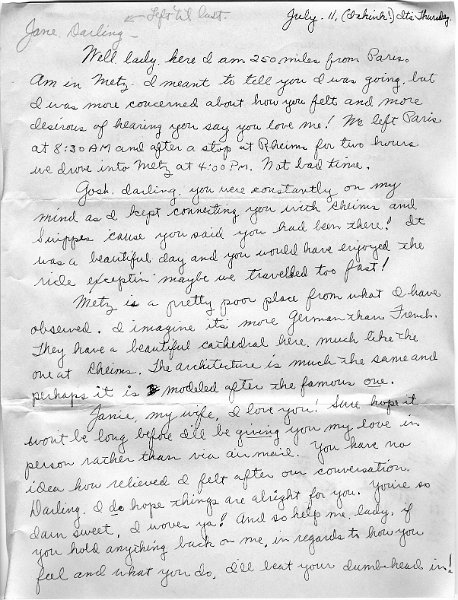 July. 11, (I think!) Its Thursday
← Left W last.
Jane Darling -
Well lady, here I am 250 miles from Paris.
Am in Metz. I meant to tell you I was going, but
I was more concerned about how you felt and more
desirous of hearing you say you love me! We left Paris
at 8:30 AM and after a stop at Rheims for two hours
we drove into Metz at 4:00 PM. Not bad time.
Gosh, darling, you were constantly on my
mind as I kept connecting you with Rheims and
Suippes 'cause you said you had been there! It
was a beautiful day and you would have enjoyed the
ride exceptin' maybe we travelled too fast!
Metz is a pretty poor place from what I have
observed. I imagine it's more German than French.
They have a beautiful cathedral here, much like the
one at Rheims. The architecture is much the same and
perhaps it is modeled after the famous one.
Janie, my wife, I love you! Sure hope it
wont be long before I'll be giving you my love in
person rather than via air mail. You have no
idea how relieved I felt after our conversation.
Darling. I do hope things are alright for you. You're so
darn sweet, I woves ya! And so help me, lady, if
you hold anything back on me, in regards to how you
feel and what you do, I'll beat your dumb-head in!